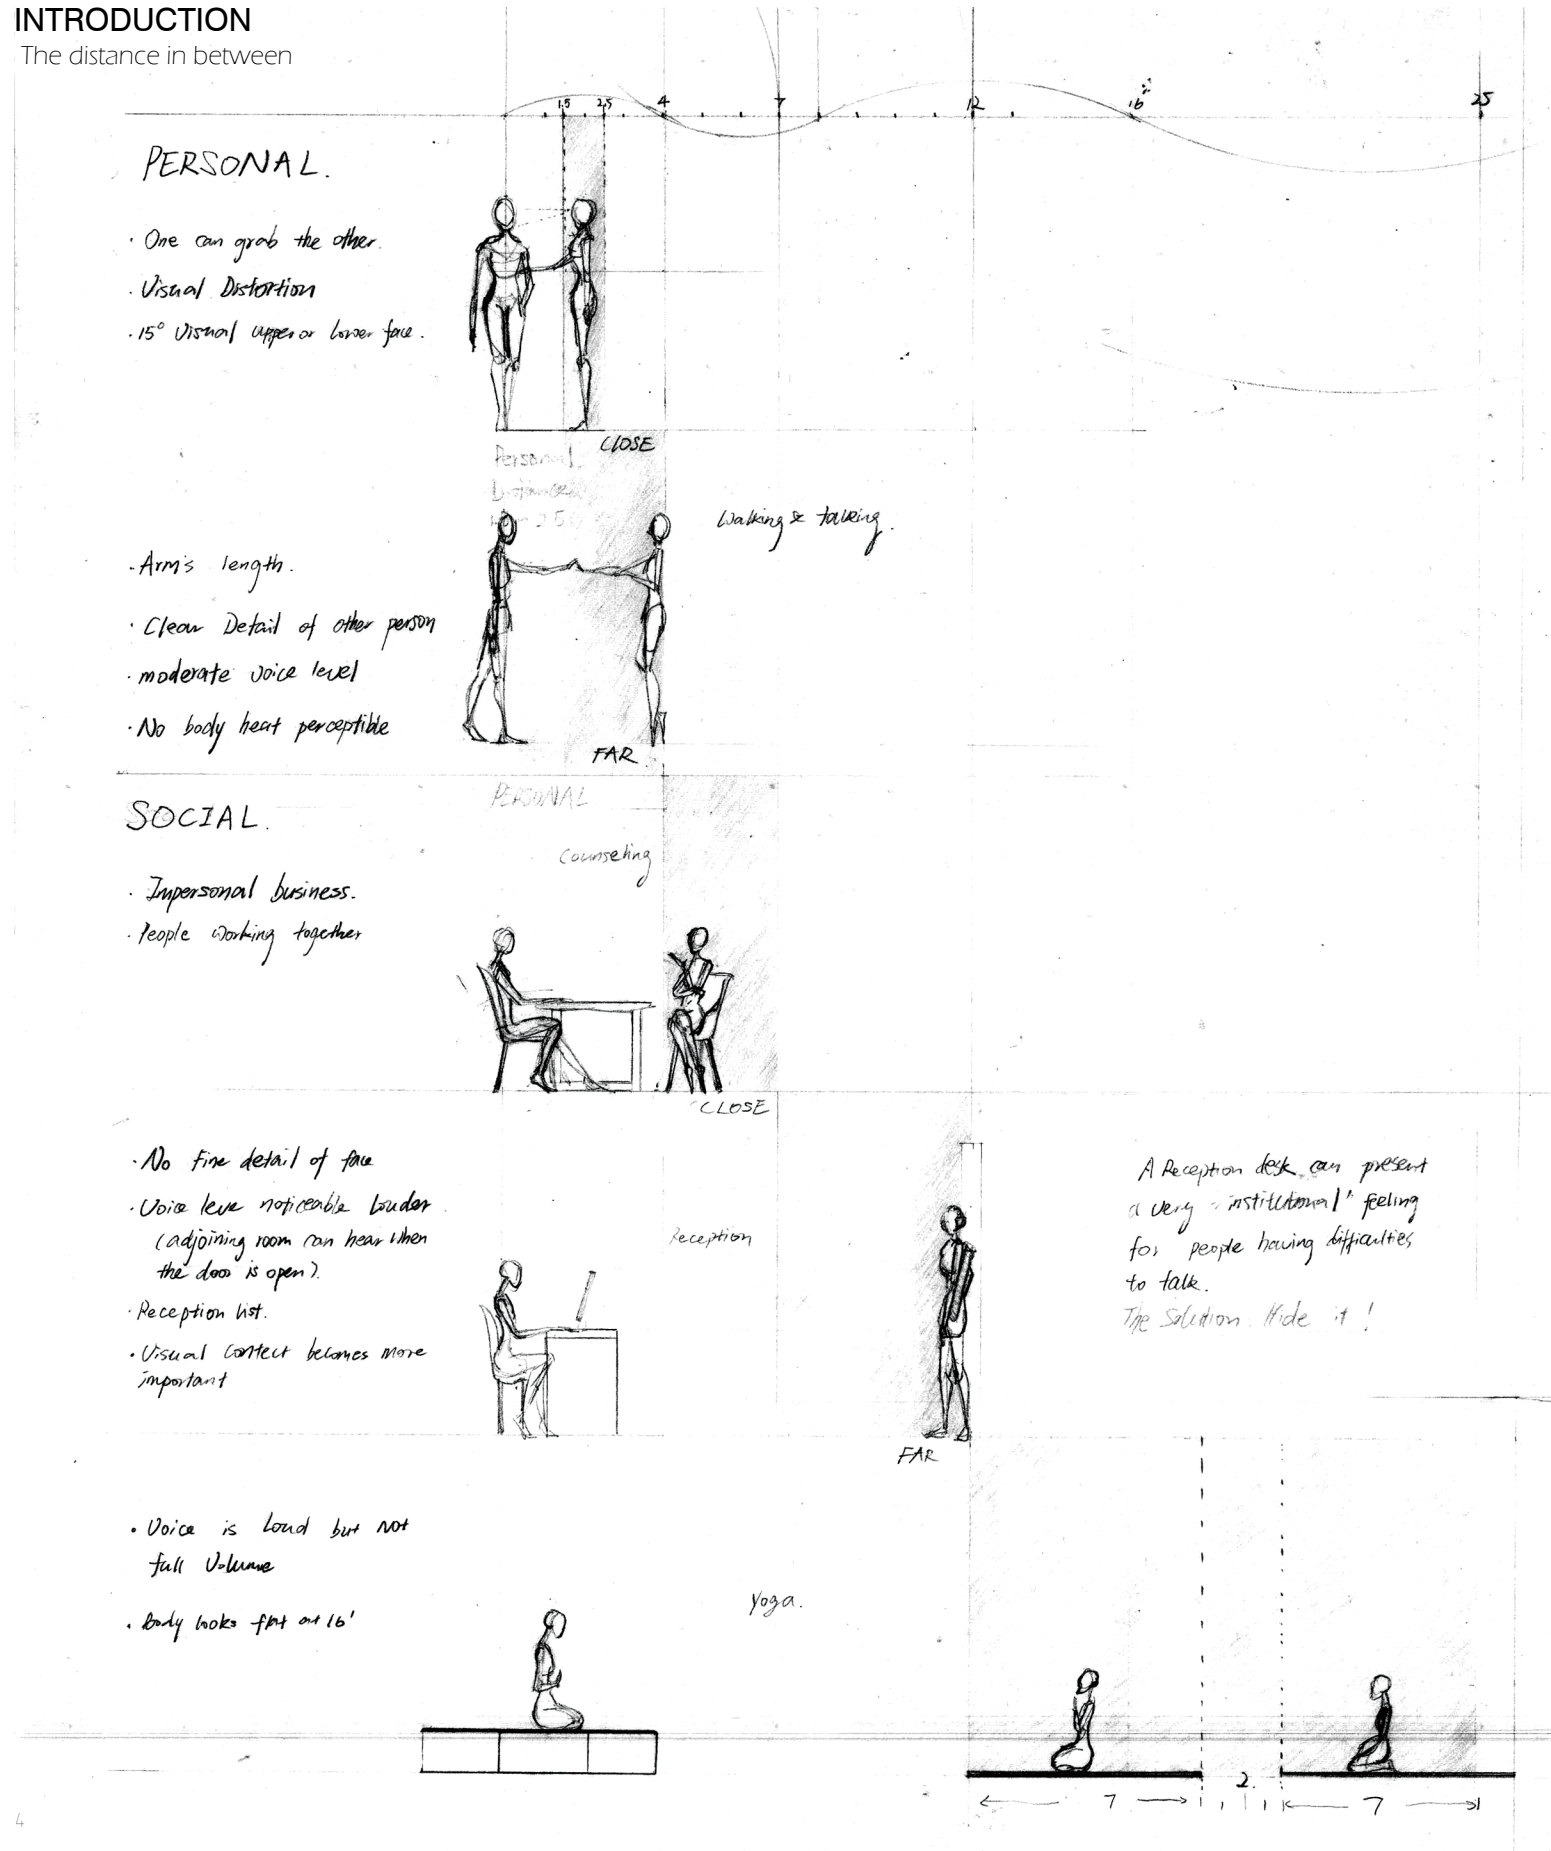 INTRODUCTION
The distance in between
1.5 2.5 4 7 12 16' 25
PERSONAL.
· One can grab the other.
· Visual Distortion
· 15° Visual upper or lower face.
CLOSE
Personal
Distance
Walking & talking.
· Arm's length.
· Clear Detail of other person
· moderate voice level
· No body heat perceptible
FAR
SOCIAL.
PERSONAL
Counseling
· Impersonal business.
· People working together
CLOSE
· No fine detail of face
· Voice leve noticeable Louder
(adjoining room can hear when
the door is open).
· Reception list.
· Visual contect becomes more
important
Reception
A Reception desk can present
a very "institutional" feeling
for people having difficulties
to talk.
The Solution. Hide it!
FAR
· Voice is loud but not
full Volume
· Body looks flat at 16'
Yoga.
2.
7 7
4